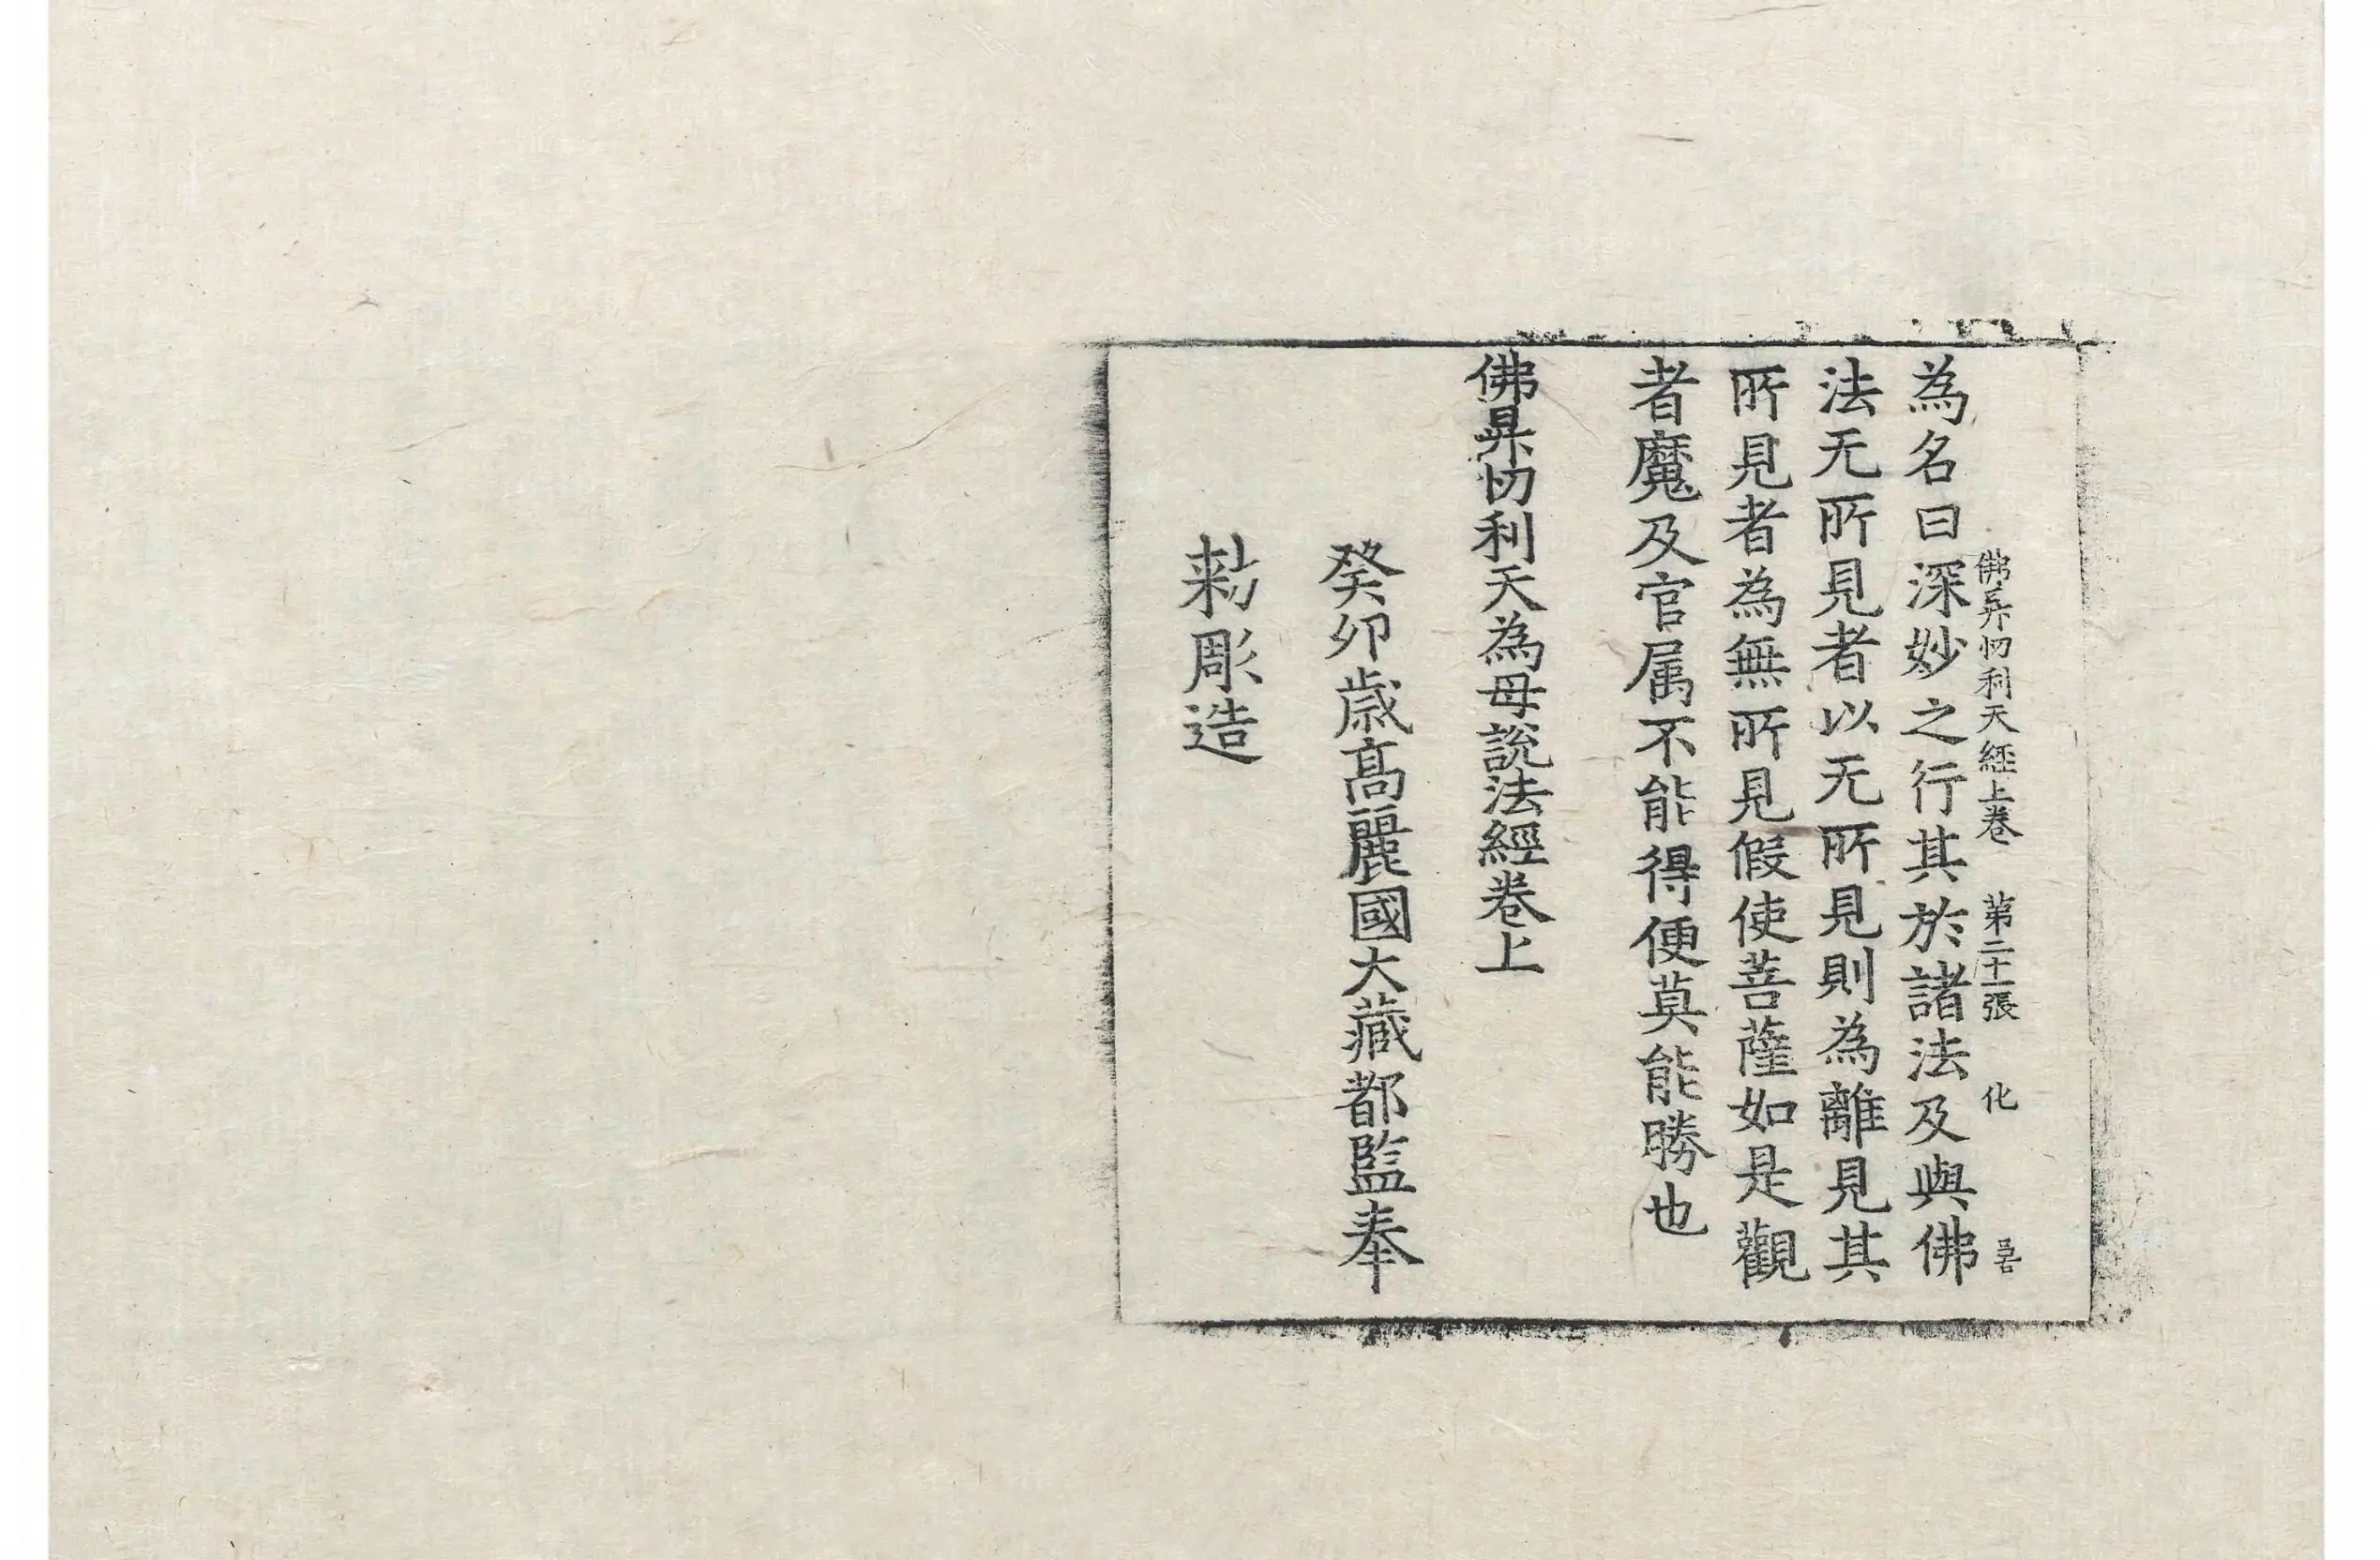 佛昇忉利天經上卷 第二十一張 化
為名曰深妙之行其於諸法及與佛
法无所見者以无所見則為離見其
所見者為無所見假使菩薩如是觀
者魔及官属不能得便莫能勝也
佛昇忉利天為母說法經卷上
癸卯歲高麗國大藏都監奉
勑彫造